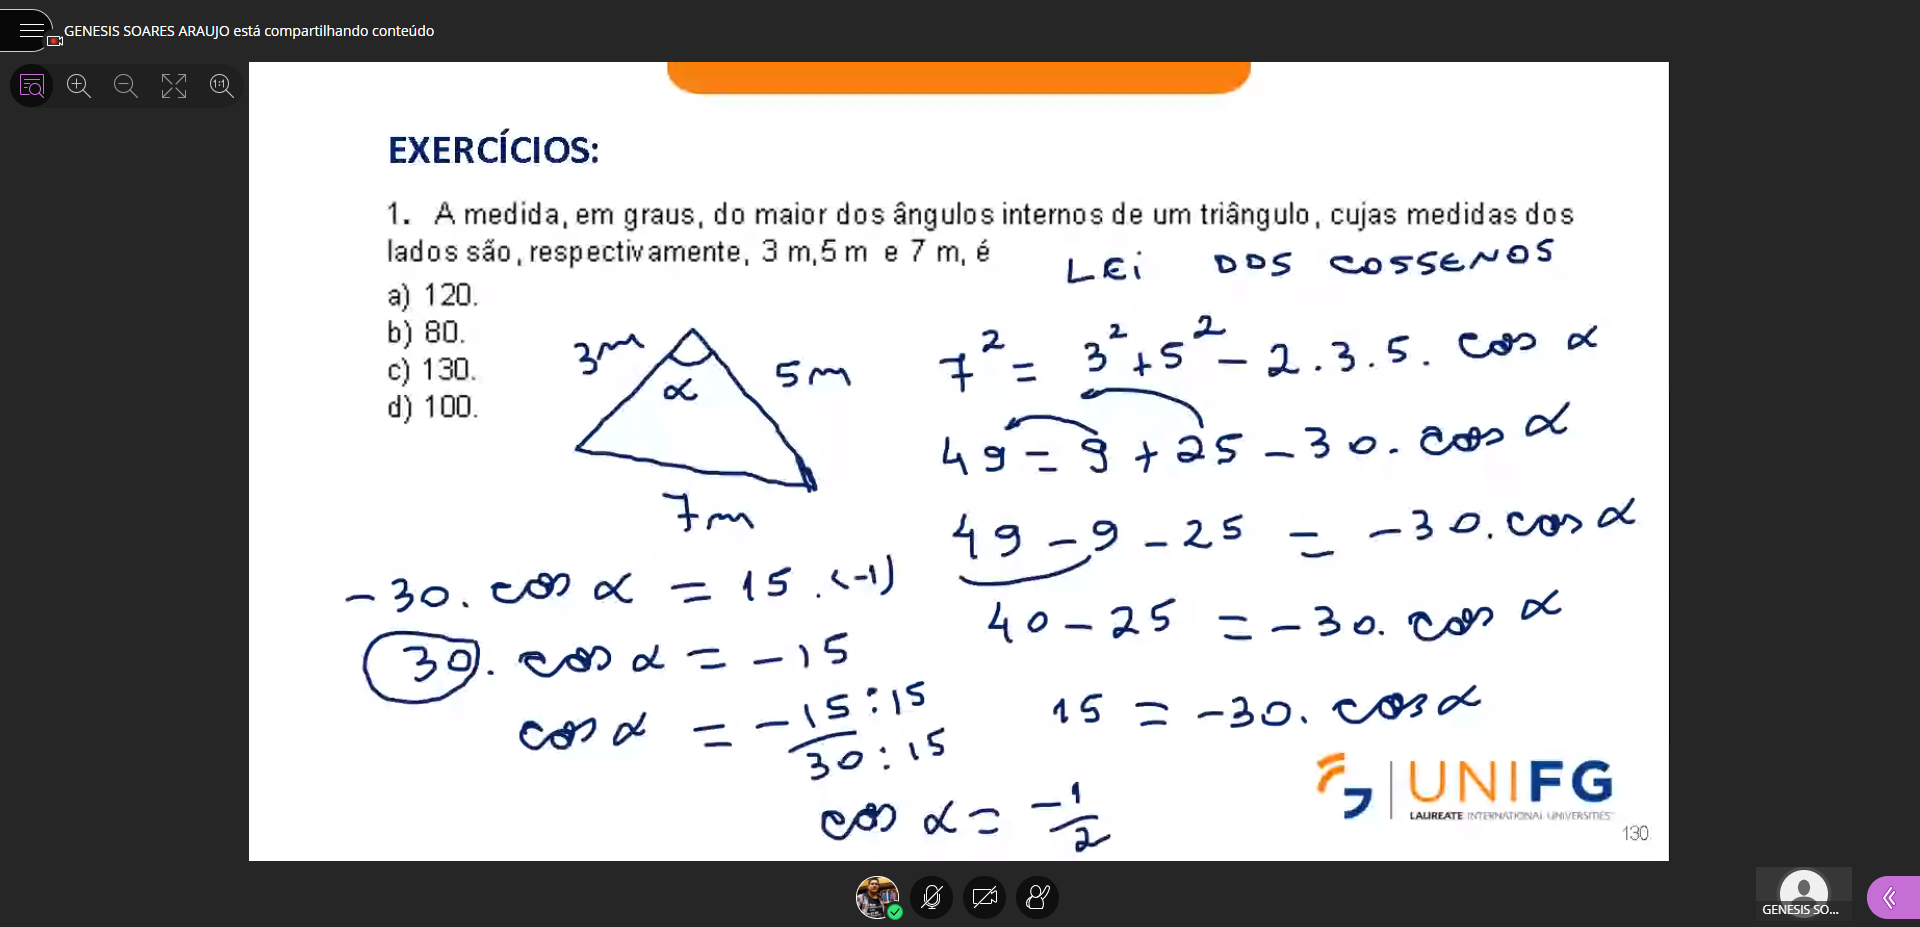 GENESIS SOARES ARAUJO está compartilhando conteúdo
1:1
EXERCÍCIOS:
1. A medida, em graus, do maior dos ângulos internos de um triângulo, cujas medidas dos
lados são, respectivamente, 3 m,5 m e 7 m, é
a) 120.
b) 80.
c) 130.
d) 100.
LEI DOS COSSENOS
3m
5m
α
7m
7² = 3² + 5² - 2 . 3 . 5 . cos α
49 = 9 + 25 - 30 . cos α
49 - 9 - 25 = -30 . cos α
40 - 25 = -30 . cos α
15 = -30 . cos α
-30 . cos α = 15 . (-1)
30 . cos α = -15
cos α = -15 : 15
30 : 15
cos α = -1
2
UNIFG
LAUREATE INTERNATIONAL UNIVERSITIES
130
GENESIS SO...